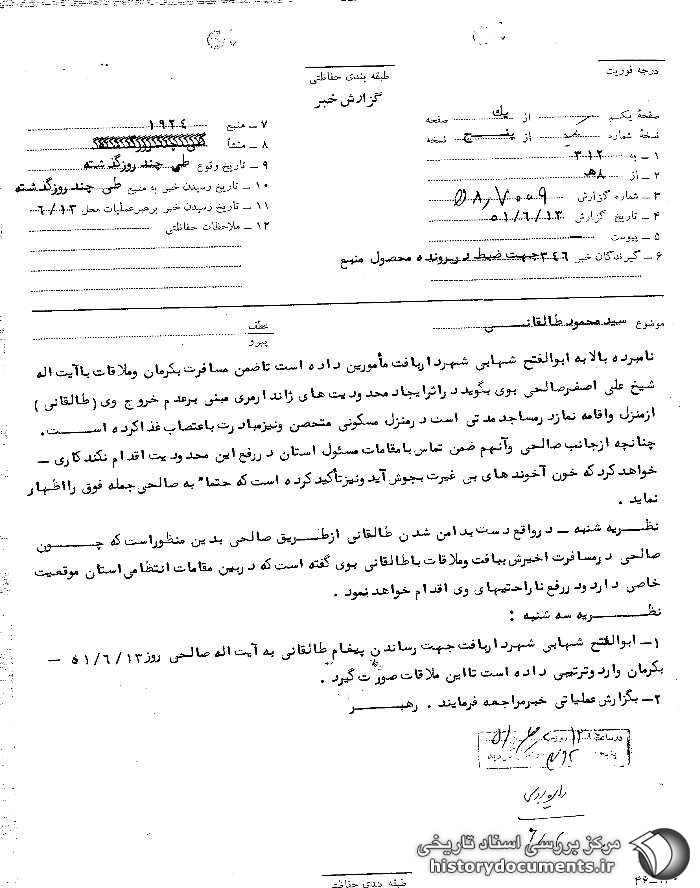 درجه فوریت
طبقه بندی حفاظتی
گزارش خبر
صفحهٔ یکم از یك صفحه
نسخهٔ شماره از پنج نسخه
۱ ـ به ۳۱۲
۲ ـ از ۸ هـ
۳ ـ شماره گزارش ۵۸,۷۰۰۹
۴ ـ تاریخ گزارش ۵۱/۶/۱۳
۵ ـ پیوست ـ
۶ ـ گیرندگان خبر ۳۴۶ جهت ضبط در پرونده محصول منبع
۷ ـ منبع ۱۹۲٤
۸ ـ منشأ
۹ ـ تاریخ وقوع طی چند روز گذشته
۱۰ ـ تاریخ رسیدن خبر به منبع طی چند روز گذشته
۱۱ ـ تاریخ رسیدن خبر برهبر عملیات محل ۶/۱۳
۱۲ ـ ملاحظات حفاظتی
موضوع سید محمود طالقانی
عطف
پیرو
نامبرده بالا به ابوالفتح شهابی شهردار بافت مأموریت داده است تا ضمن مسافرت بکرمان و ملاقات با آیت اله
شیخ علی اصغر صالحی بوی بگوید در اثر ایجاد محدودیت های ژاندارمری مبنی بر عدم خروج وی (طالقانی)
از منزل و اقامه نماز در مساجد مدتی است در منزل مسکونی متحصن و نیز مبادرت باعتصاب غذا کرده است.
چنانچه از جانب صالحی و آنهم ضمن تماس با مقامات مسئول استان در رفع این محدودیت اقدام نکند کاری ـ
خواهد کرد که خون آخوند های بی غیرت بجوش آید و نیز تأکید کرده است که حتما" به صالحی جمله فوق را اظهار
نماید .
نظریه شنبه ـ در واقع دست بدامن شدن طالقانی از طریق صالحی بدین منظور است که چون
صالحی در مسافرت اخیرش ببافت و ملاقات با طالقانی بوی گفته است که در بین مقامات انتظامی استان موقعیت
خاصی دارد و در رفع ناراحتیهای وی اقدام خواهد نمود .
نظریه سه شنبه :
۱ـ ابوالفتح شهابی شهردار بافت جهت رساندن پیغام طالقانی به آیت اله صالحی روز ۵۱/۶/۱۳ ـ
بکرمان وارد و ترتیبی داده است تا این ملاقات صورت گیرد .
۲ـ بگزارش عملیاتی خبر مراجعه فرمایند . رهبر
در ساعت
طبقه بندی حفاظتی
مرکز بررسی اسناد تاریخی
historydocuments.ir